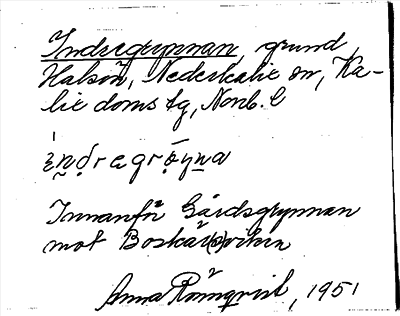 Indregrynnan, grund,
Halsön, Nederkalix sn, Ka-
lix doms tg, Nonb. l
Innanför Gårdsgrynnan
mot Boskär(s)viken
Anna Rönnqvist, 1951